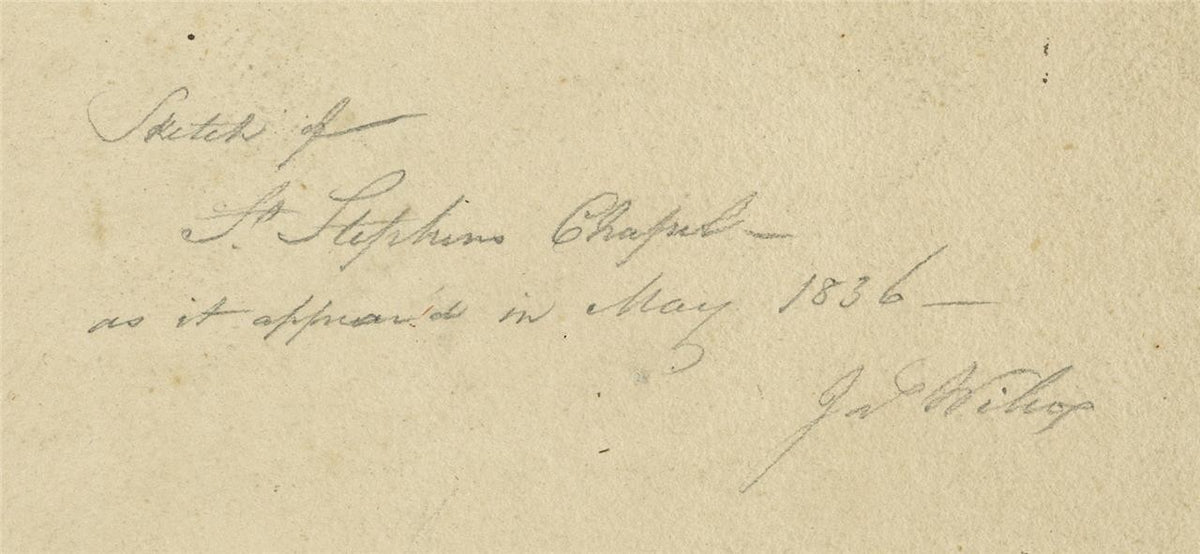 Sketch of
St Stephens Chapel —
as it appear'd in May 1836 —
Wilcox